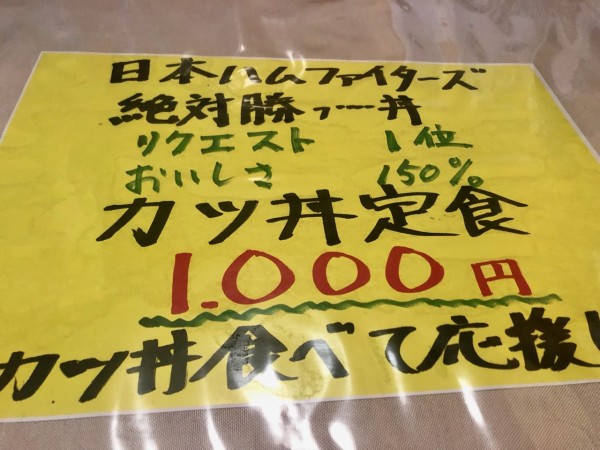 日本ハムファイターズ
絶対勝ツ丼
リクエスト 1位
おいしさ 150%
カツ丼定食
1.000円
カツ丼食べて応援し